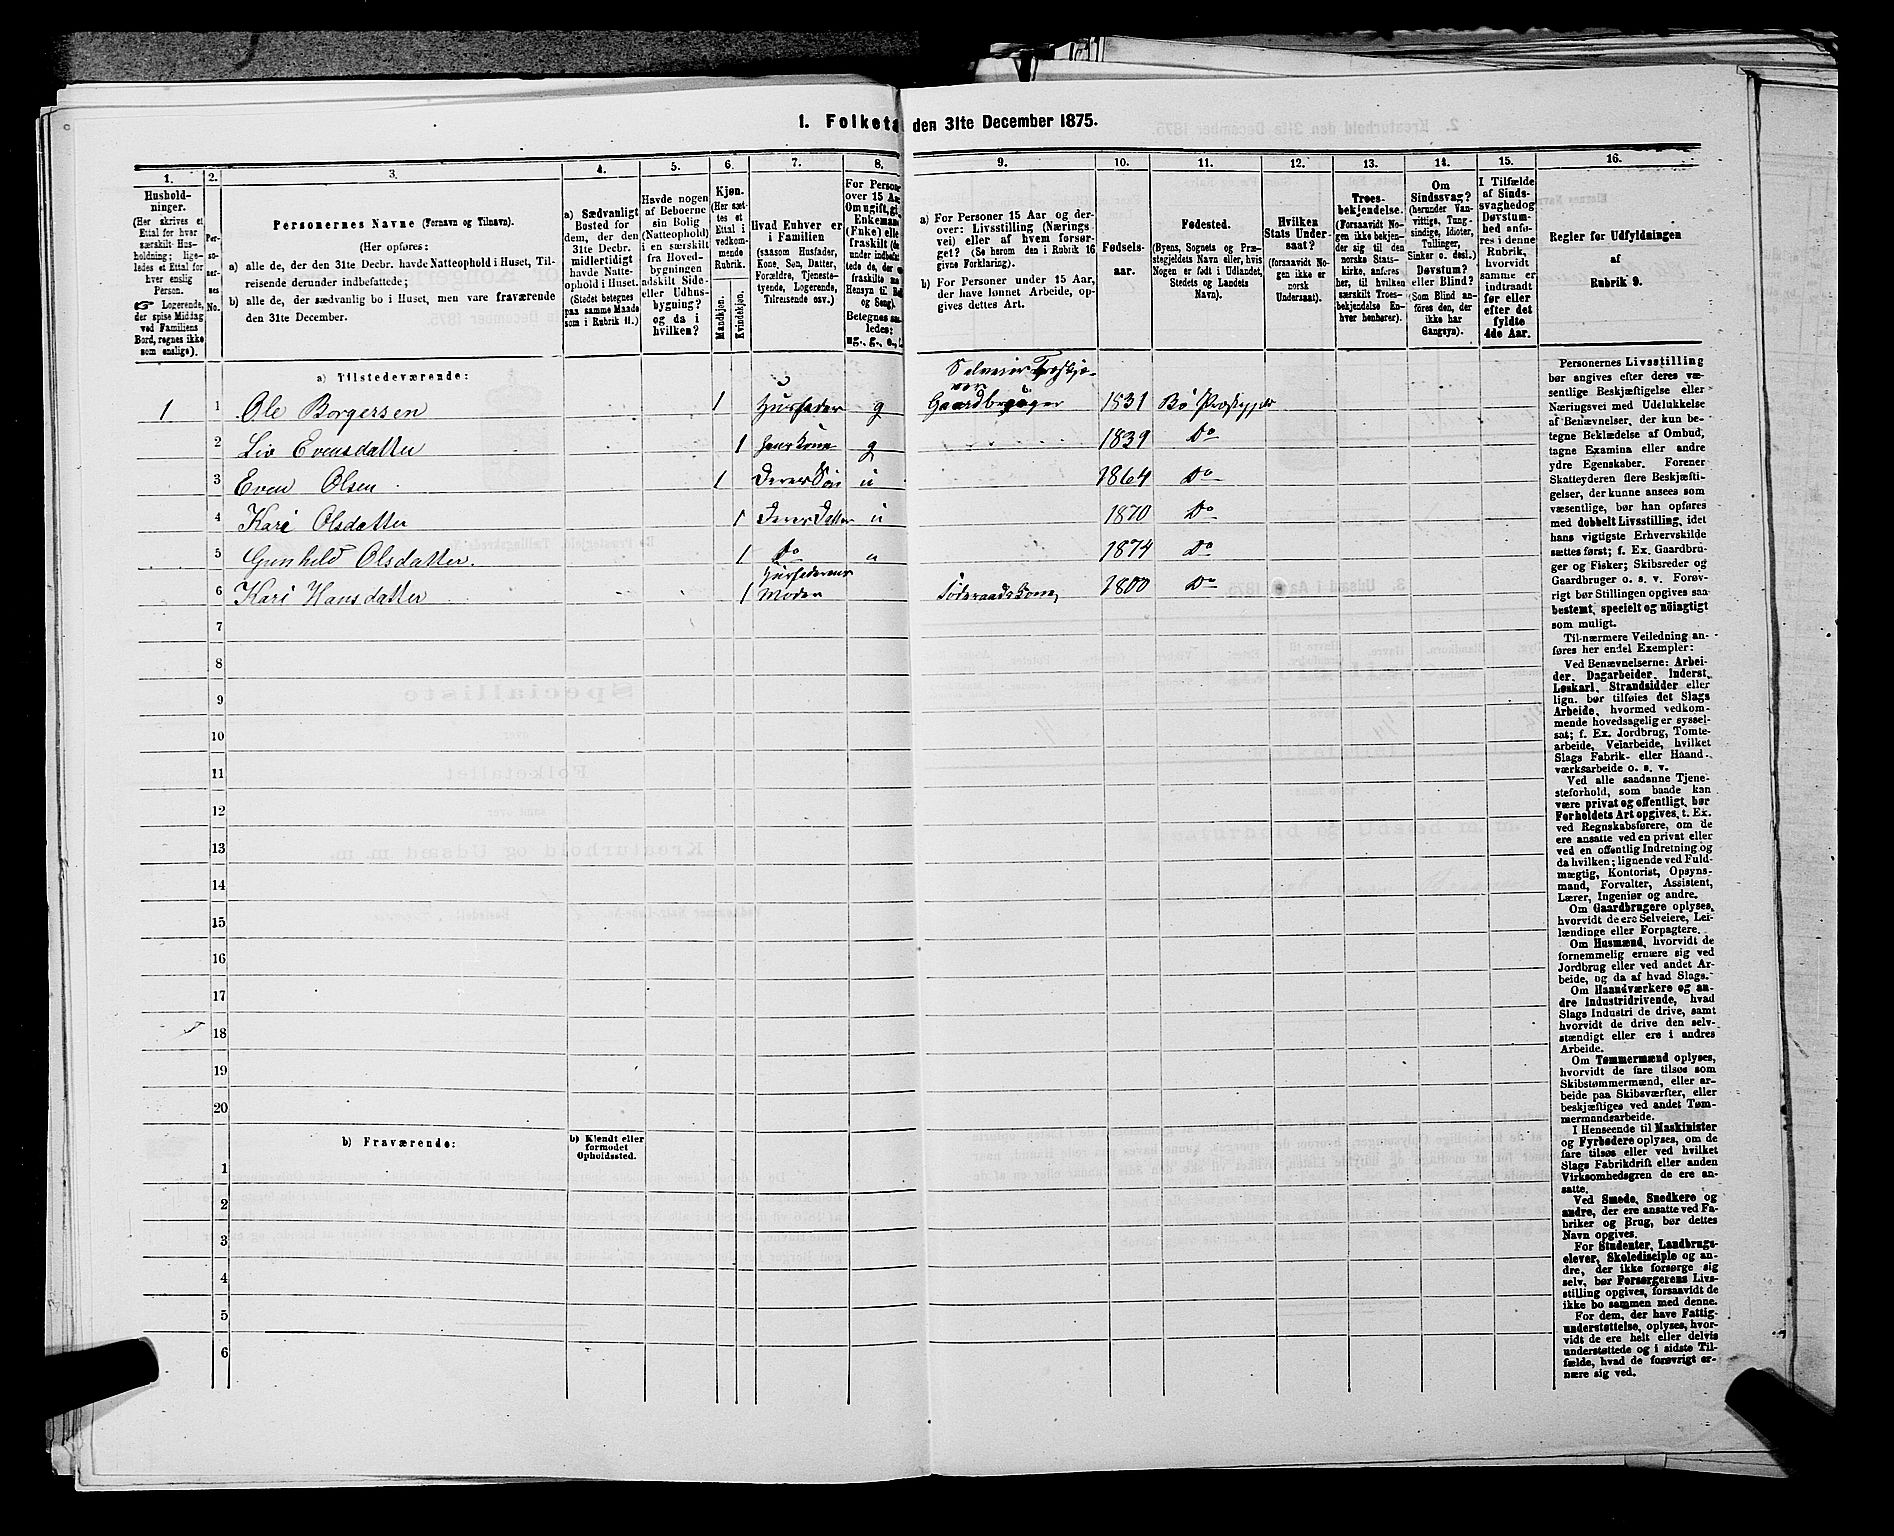 1. Folketa den 31te December 1875.
1.
Hushold-
ninger.
(Her skrives et
Ettal for hver
særskilt Hus-
holdning; lige-
ledes et Ettal for
hver enslig
Person.
☞ Logerende,
der spise Middag
ved Familiens
Bord, regnes ikke
som enslige).
2.
Per-
so-
ner-
nes
No.
3.
Personernes Navne (Fornavn og Tilnavn).
(Her opføres:
a) alle de, der den 31te Decbr. havde Natteophold i Huset, Til-
reisende derunder indbefattede;
b) alle de, der sædvanlig bo i Huset, men vare fraværende
den 31te December.
4.
a) Sædvanligt
Bosted for
dem, der den
31te Decbr.
midlertidigt
havde Natte-
ophold i Huset.
(Stedet betegnes
paa samme Maade
som i Rubrik 11.)
5.
Havde nogen
af Beboerne
sin Bolig
(Natteophold)
i en særskilt
fra Hoved-
bygningen
adskilt Side-
eller Udhus-
bygning?
og da i
hvilken?
6.
Kjøn.
(Her sæt-
tes et
Ettal i
vedkom-
mende
Rubrik.
Mandkjøn.
Kvindekjøn.
7.
Hvad Enhver er
i Familien
(saasom Husfader,
Kone, Søn, Datter,
Forældre, Tjeneste-
tyende, Logerende,
Tilreisende osv.)
8.
For Persone
over 15 Aa
Om ugift, gi
Enkeman
(Enke) elle
fraskilt (de
under indbefat-
tede de, der e
fraskilte m
Hensyn til B
og Seng).
Betegnes saa
ledes:
ug., g., e.,
9.
a) For Personer 15 Aar og der-
over: Livsstilling (Nærings-
vei) eller af hvem forsør-
get? (Se herom den i Rubrik 16
givne Forklaring).
b) For Personer under 15 Aar,
der have lønnet Arbeide, op-
gives dettes Art.
10.
Fødsels-
aar.
11.
Fødested.
(Byens, Sognets og Præ-
stegjeldets Navn eller, hvis
Nogen er født i Udlandet,
Stedets og Landets
Navn).
12.
Hvilken
Stats Under-
saat?
(forsaavidt No-
gen ikke er
norsk
Undersaat).
13.
Troes-
bekjendelse.
(Forsaavidt No-
gen ikke bekjen-
der sig til den
norske Stats-
kirke, anføres
her, til hvilken
særskilt Troes-
bekjendelse En-
hver henhører).
14.
Om
Sindssvag?
(herunder Van-
vittige, Tung-
sindige, Idioter,
Tullinger,
Sinker o. desl.)
Døvstum?
eller Blind?
(Som Blind an-
føres den, der
ikke har
Gangsyn).
15.
I Tilfælde
af Sinds-
svaghed og
Døvstum-
hed anfø-
res i denne
Rubrik,
hvorvidt
samme er
indtraadt
før eller
efter det
fyldte
4de Aar.
16.
Regler for Udfyldningen
af
Rubrik 9.
a) Tilstedeværende:
1 1 Ole Borgersen 1 Husfader g Selveier Gaardbruger 1831 Bø Præstegjeld
2 Liv Evensdatter 1 hans Kone g 1839 Do
3 Even Olsen 1 Deres Søn u 1864 Do
4 Kari Olsdatter 1 Deres Datter u 1870 Do
5 Gunhild Olsdatter. 1 Do u 1874 Do
6 Kari Hansdatter 1 Husfaderens Moder Føderaadskone 1800 Do
7
8
9
10
11
12
13
14
15
16
17
18
19
20
b) Fraværende:
b) Kjendt eller
formodet
Opholdssted.
1
2
3
4
5
6
Personernes Livsstilling
bør angives efter deres væ-
sentlige Beskjæftigelse eller
Næringsvei med Udelukkelse
af Benævnelser, der kun be-
tegne Beklædelse af Ombud,
tagne Examina eller andre
ydre Egenskaber. Forener
Skatteyderen flere Beskjæfti-
gelser, der kunne ansees som
væsentlige, bør han opføres
med dobbelt Livsstilling, idet
hans vigtigste Erhvervskilde
sættes først; f. Ex. Gaardbru-
ger og Fisker; Skibsreder og
Gaardbruger o. s. v. Forøv-
rigt bør Stillingen opgives saa
bestemt, specielt og nöiagtigt
som muligt.
Til nærmere Veiledning an-
føres her endel Exempler:
Ved Benævnelserne: Arbei-
der, Dagarbeider, Inderst,
Løskarl, Strandsidder eller
lign. bør tilføies det Slags
Arbeide, hvormed vedkom-
mende hovedsagelig er syssel-
sat; f. Ex. Jordbrug, Tomte-
arbeide, Veiarbeide, hvilket
Slags Fabrik- eller Haand
værksarbeide o. s. v.
Ved alle saadanne Tjene-
steforhold, som baade kan
være privat og offentligt, bør
Forholdets Art opgives, t. Ex.
ved Regnskabsførere, om de
ere ansatte ved en privat eller
ved en offentlig Indretning og
da hvilken; lignende ved Fuld-
mægtig, Kontorist, Opsyns-
mand, Forvalter, Assistent,
Lærer, Ingeniør og andre.
Om Gaardbrugere oplyses,
hvorvidt de ere Selveiere, Lei-
lændinge eller Forpagtere.
Om Husmænd, hvorvidt de
fornemmelig ernære sig ved
Jordbrug eller ved andet Ar-
beide, og da af hvad Slags.
Om Haandværkere og an-
dre Industridrivende, hvad
Slags Industri de drive, samt
hvorvidt de drive den selv-
stændigt eller ere i andres
Arbeide.
Om Tømmermænd oplyses,
hvorvidt de fare tilsøs som
Skibstømmermænd, eller ar-
beide paa Skibsværfter, eller
beskjæftiges ved andet Tøm-
mermandsarbeide.
I Henseende til Maskinister
og Fyrbødere oplyses, om de
fare tilsøs eller ved hvilket
Slags Fabrikdrift eller anden
Virksomhedsgren de ere an-
satte.
Ved Smede, Snedkere og
andre, der ere ansatte ved Fa-
briker og Brug, bør dettes
Navn opgives.
For Studenter, Landbrugs-
elever, Skoledisciple og an-
dre, der ikke forsørge sig
selv, bør Forsørgerens Livs-
stilling opgives, forsaavidt de
ikke bo sammen med denne.
For dem, der have Fattig-
understøttelse, oplyses, hvor-
vidt de ere helt eller delvis
understøttede og i sidste Til-
fælde, hvad de forøvrigt er-
nære sig ved.